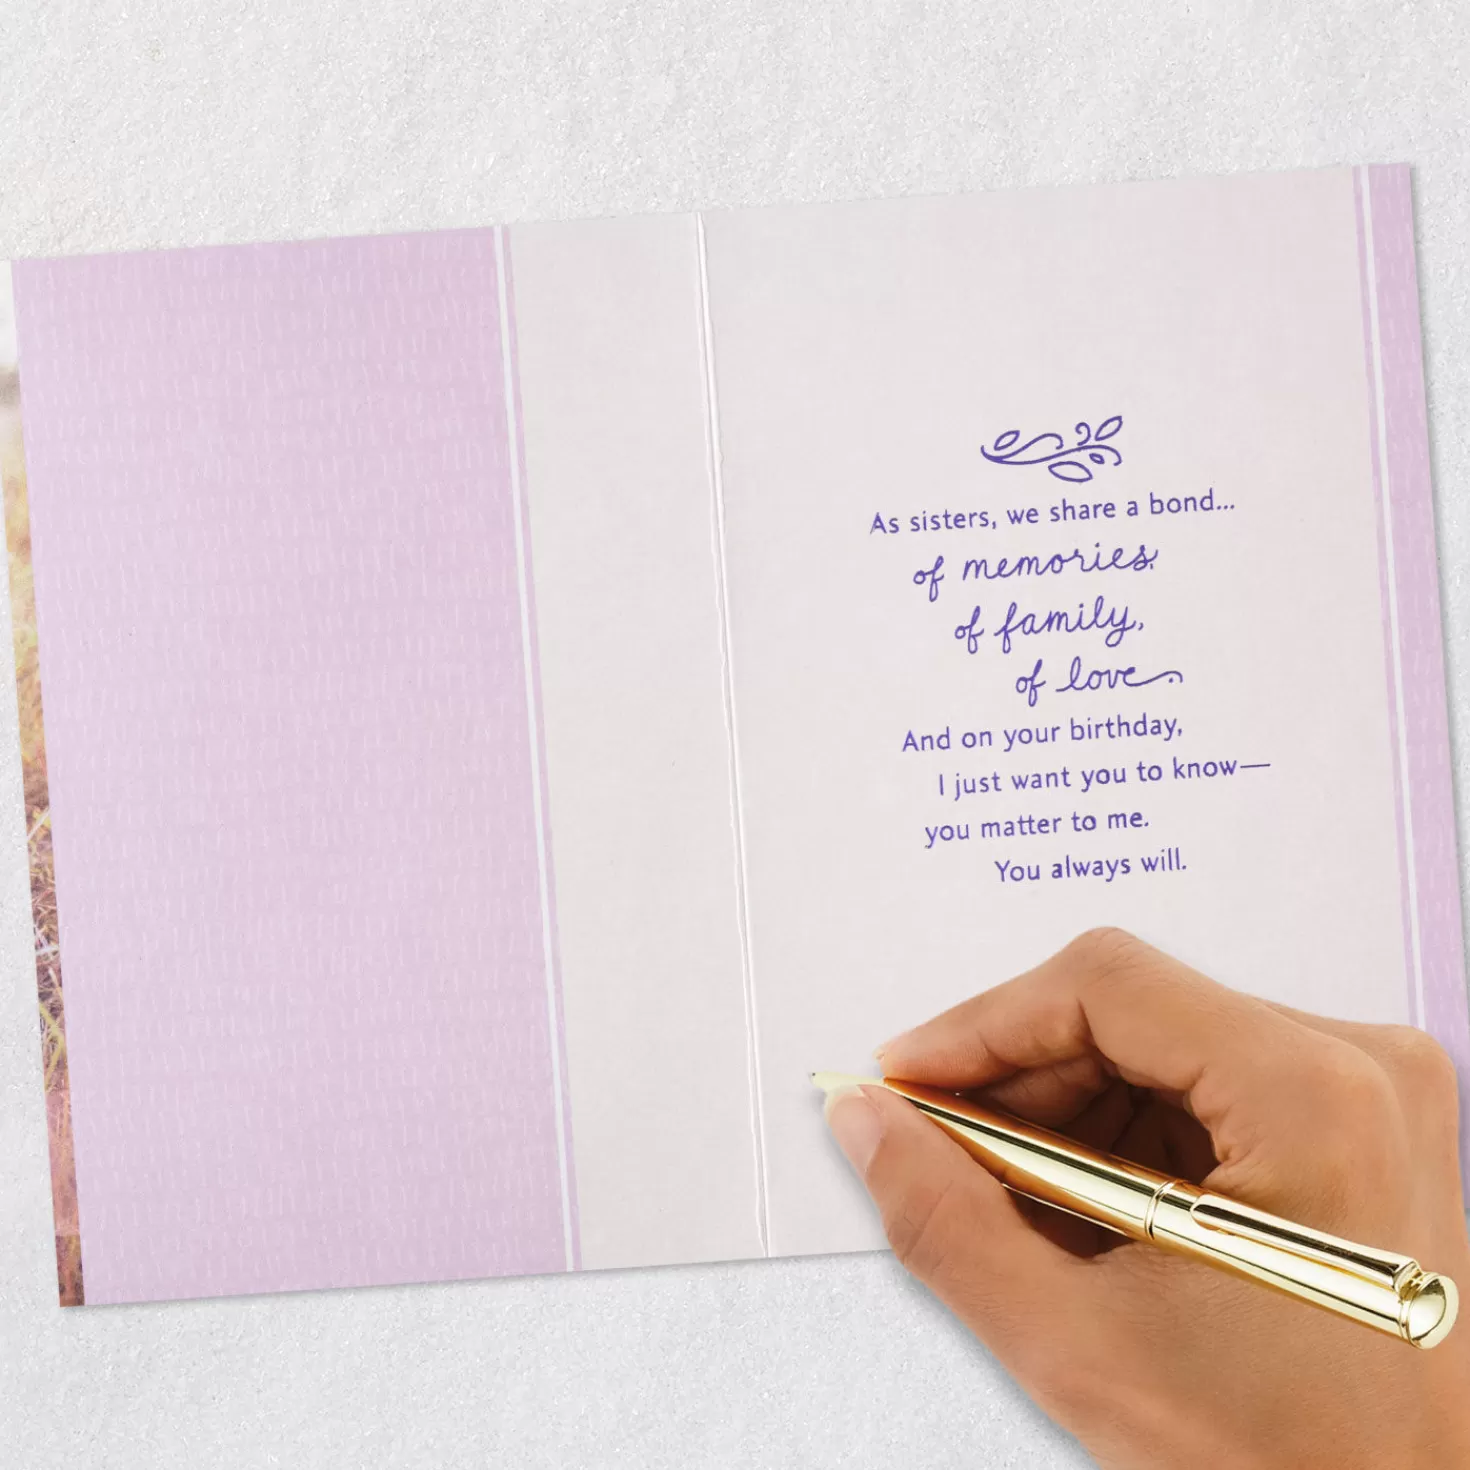 As sisters, we share a bond...
of memories,
of family,
of love.
And on your birthday,
I just want you to know—
you matter to me.
You always will.